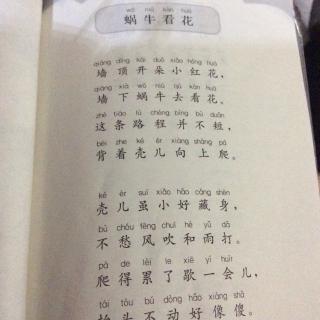 wō niú kàn huā
蜗牛看花
qiáng dǐng kāi duǒ xiǎo hóng huā
墙顶开朵小红花，
qiáng xià wō niú qù kàn huā
墙下蜗牛去看花。
zhè tiáo lù chéng bìng bù duǎn
这条路程并不短，
bēi zhe ké ér xiàng shàng pá
背着壳儿向上爬。
ké ér suī xiǎo hǎo cáng shēn
壳儿虽小好藏身，
bù chóu fēng chuī hé yǔ dǎ
不愁风吹和雨打。
pá de lèi le xiē yī huìr
爬得累了歇一会儿，
tái tóu bù dòng hǎo xiàng shǎ
抬头不动好像傻。